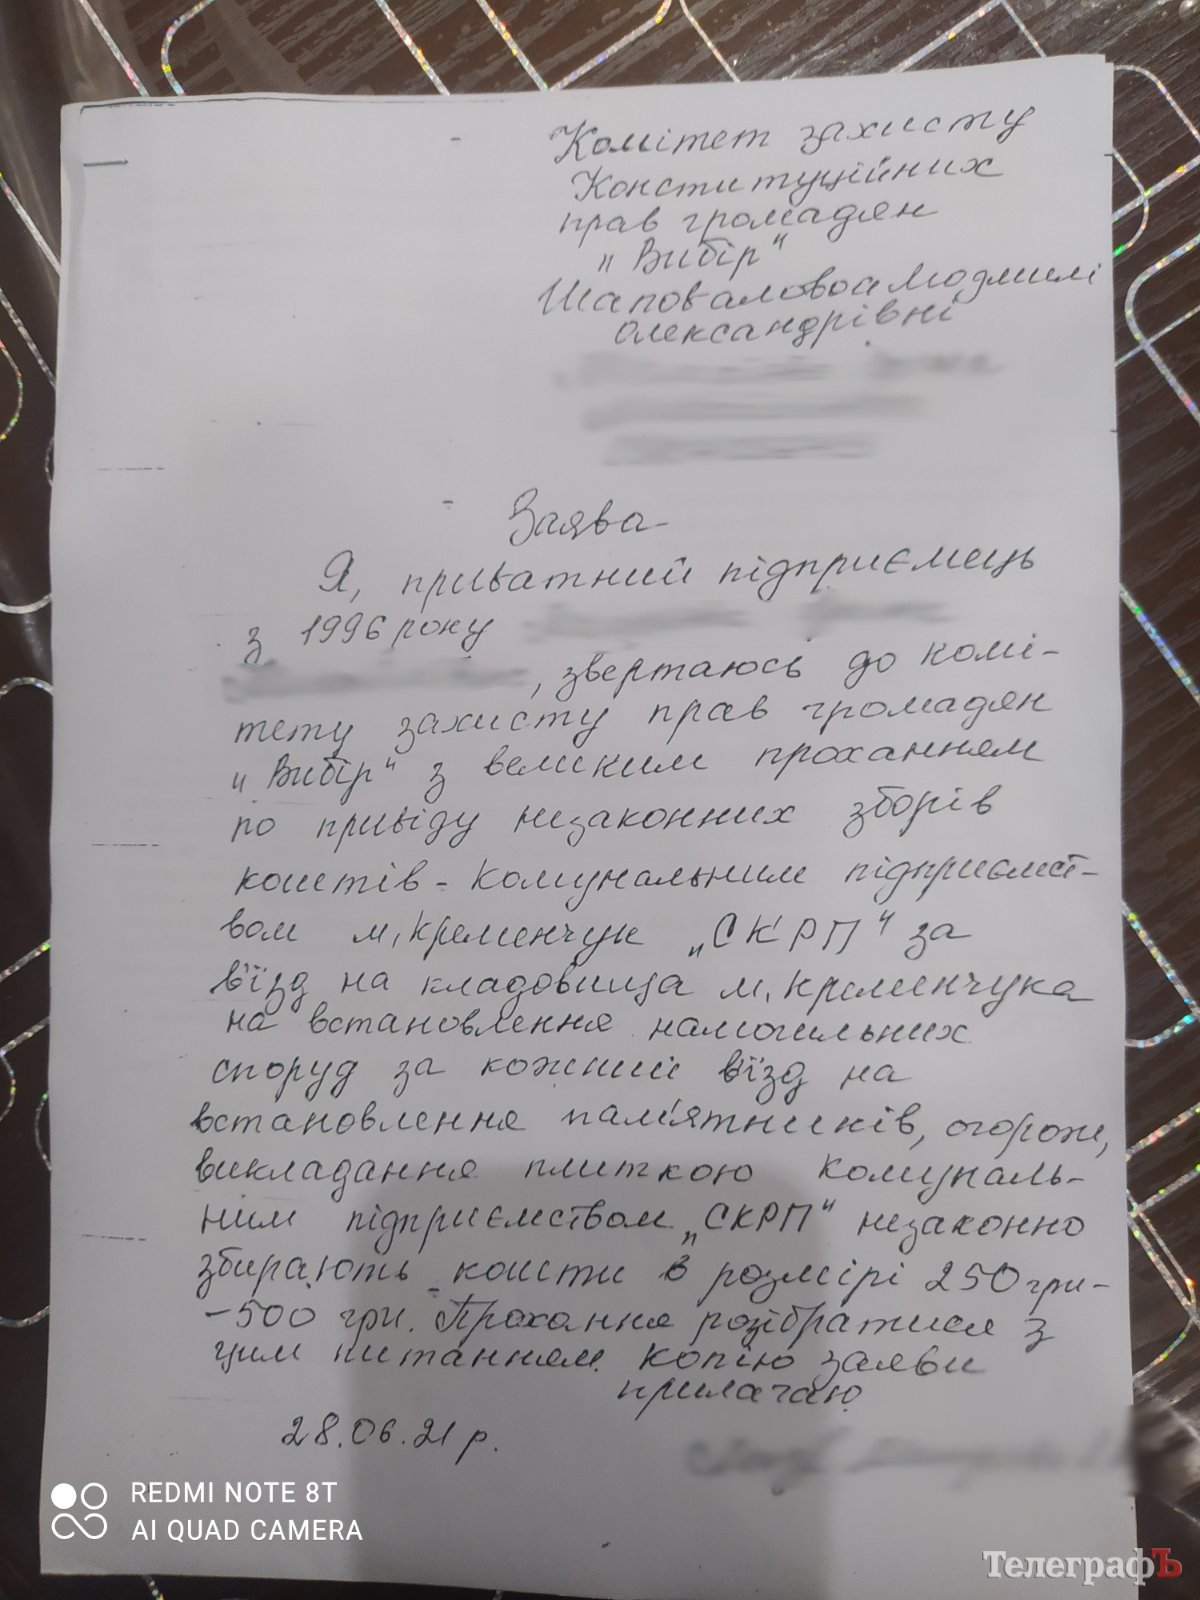 Комітет захисту
Конституційних
прав громадян
"Вибір"
Шаповаловоа Людмилі
Олександрівні
Заява
Я, приватний підприємець
з 1996 року
, звертаюсь до комі-
тету захисту прав громадян
"Вибір" з великим проханням
по привіду незаконних зборів
коштів - комунальним підприємст-
вом м. Кременчук "СКРП" за
в'їзд на кладовища м. Кременчука
на встановлення намогильних
споруд за кожний в'їзд на
встановлення пам'ятників, огорож,
викладання плиткою комуналь-
ним підприємством "СКРП" незаконно
збирають кошти в розмірі 250 грн-
-500 грн. Прохання розібратися з
цим питанням. Копію заяви
прилагаю
28.06.21 р.
REDMI NOTE 8T
AI QUAD CAMERA
ТелеграфЪ